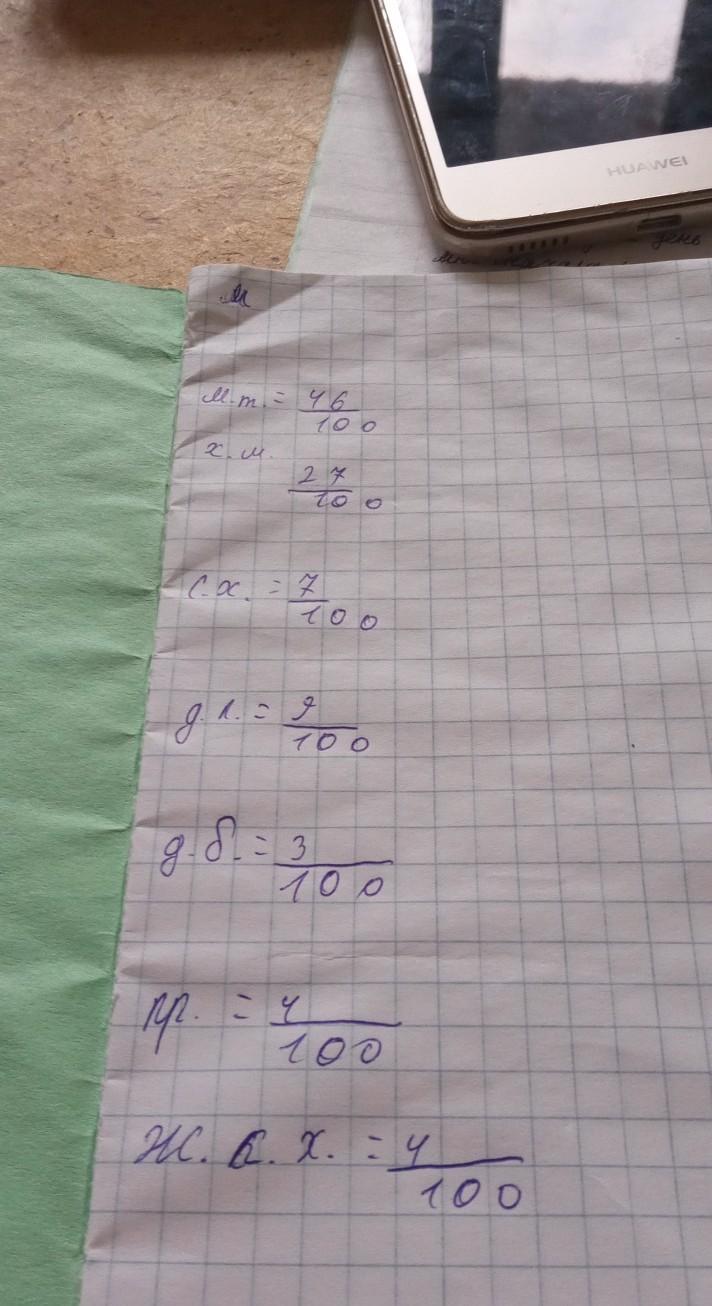 HUAWEI
день
м
м.т. = 46
100
х.м.
27
100
с.х. = 7
100
д.л. = 9
100
д.б. = 3
100
пр. = 4
100
Ж.К.Х. = 4
100